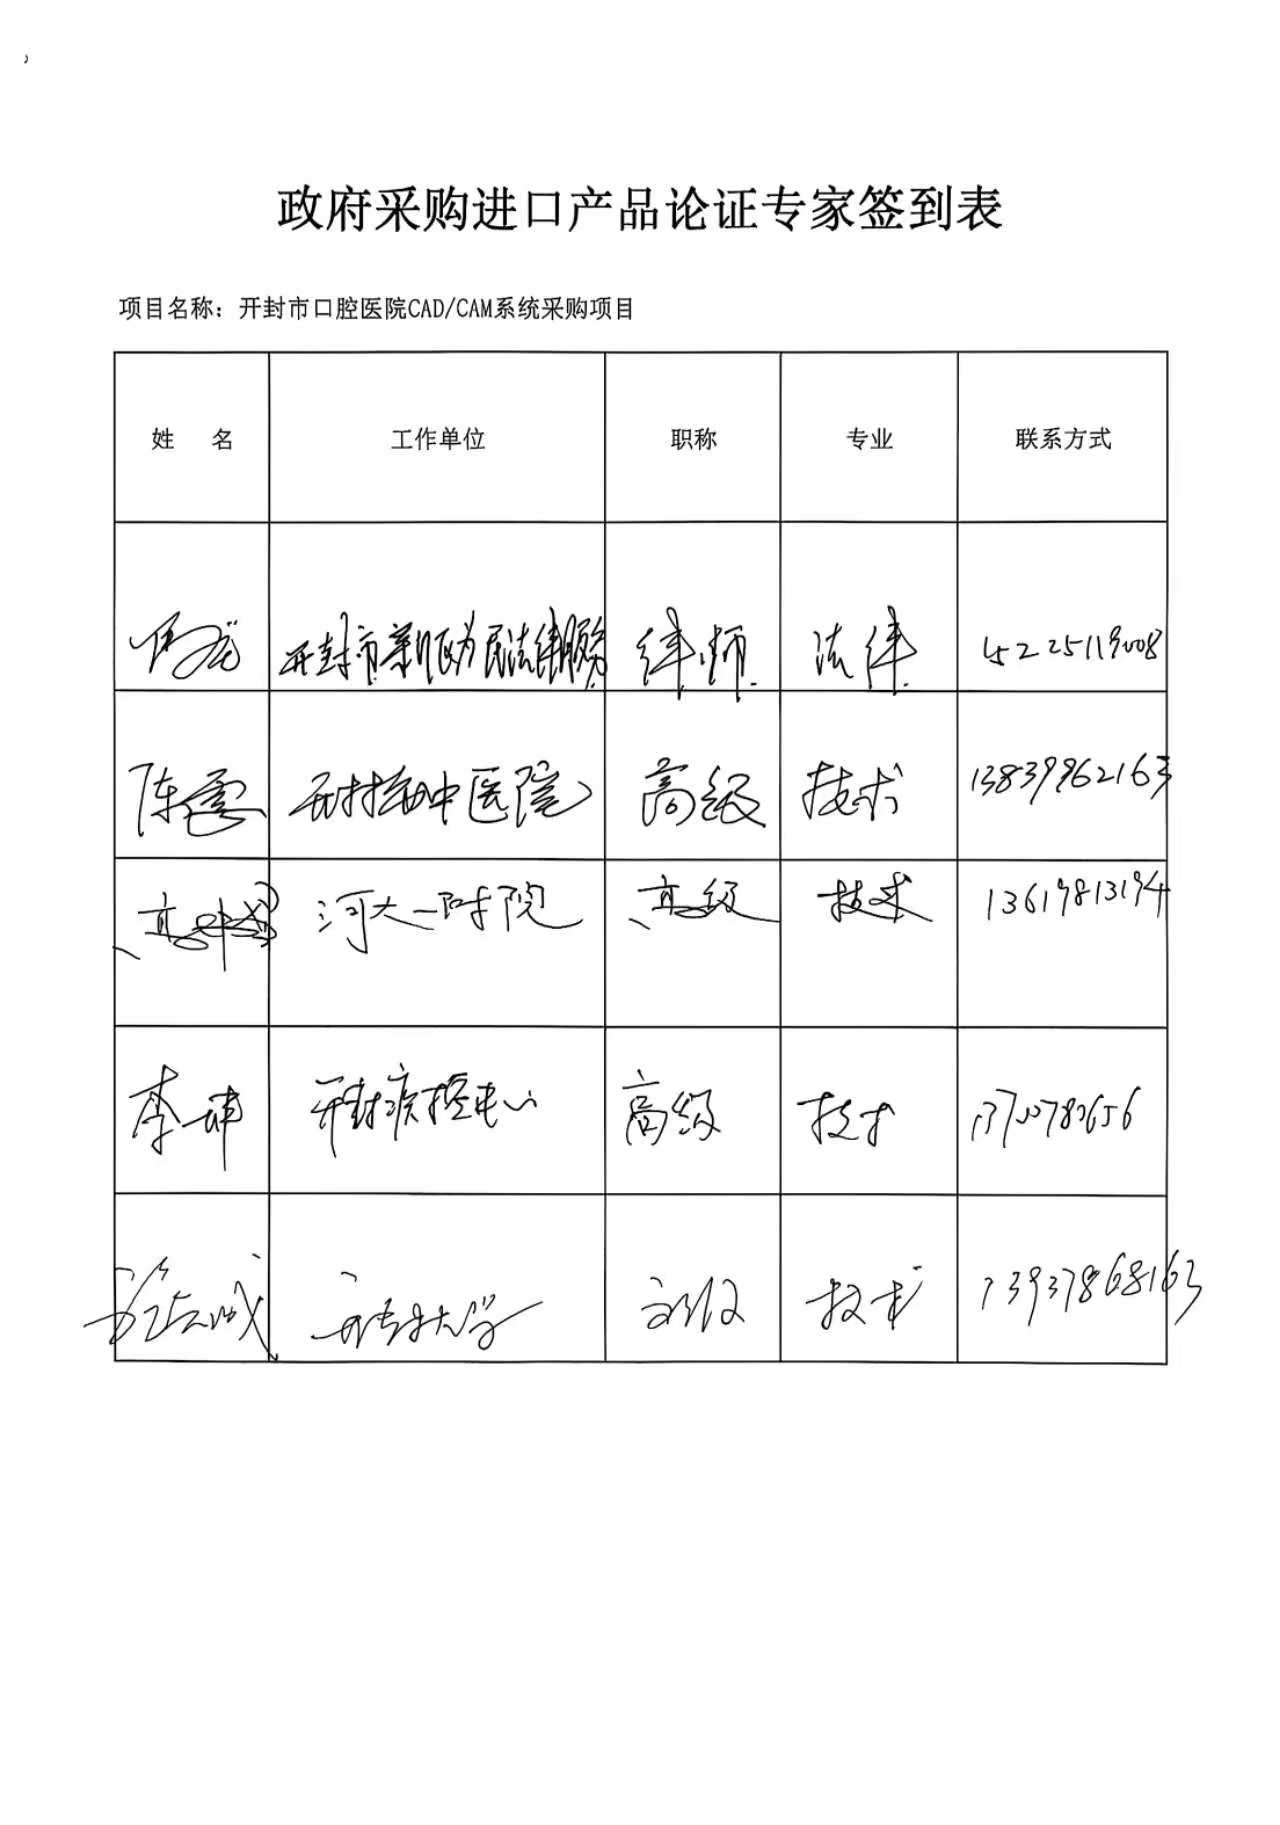 政府采购进口产品论证专家签到表
项目名称：开封市口腔医院CAD/CAM系统采购项目
姓 名 工作单位 职称 专业 联系方式
律师 法律 15225119008
陈 中医院 高级 技术 13839962163
高 河大一附院 高级 技术 13619813194
李坤 开封疾控中心 高级 技术
大学 技术 13937868163